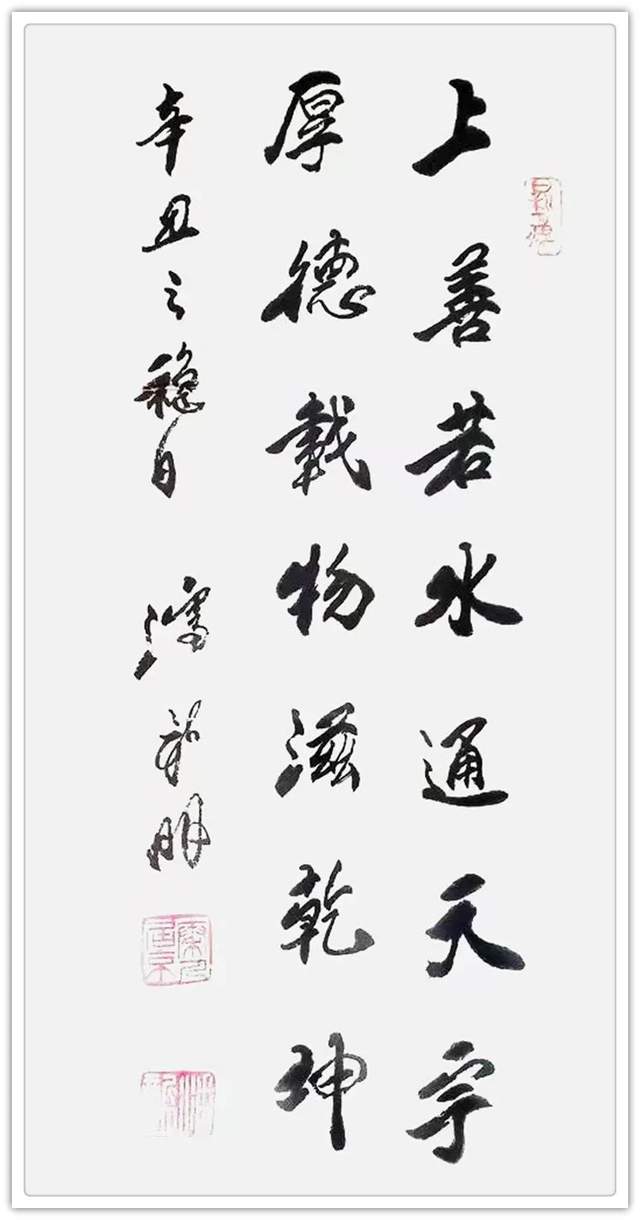 上善若水通天宇
厚德載物滋乾坤
辛丑之穐日
明